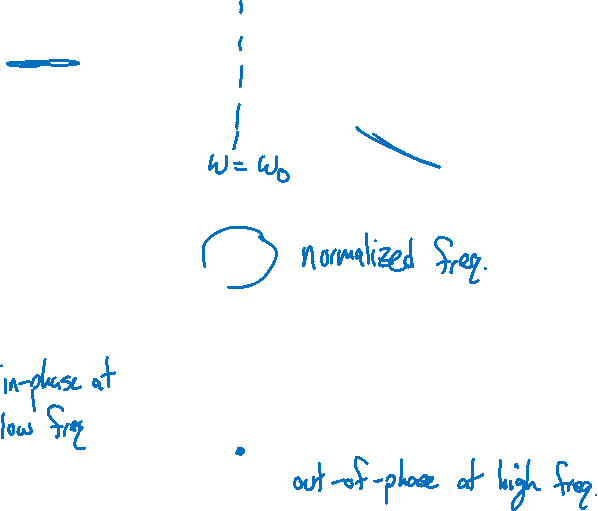 ω = ω₀
normalized freq.
in-phase at
low freq
out-of-phase at high freq.